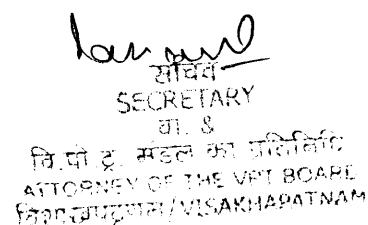 सचिव
SECRETARY
वा. &
वि.पो.ट्र. मंडल का प्रतिनिधि
ATTORNEY OF THE VPT BOARD
विशाखपट्टणम/VISAKHAPATNAM